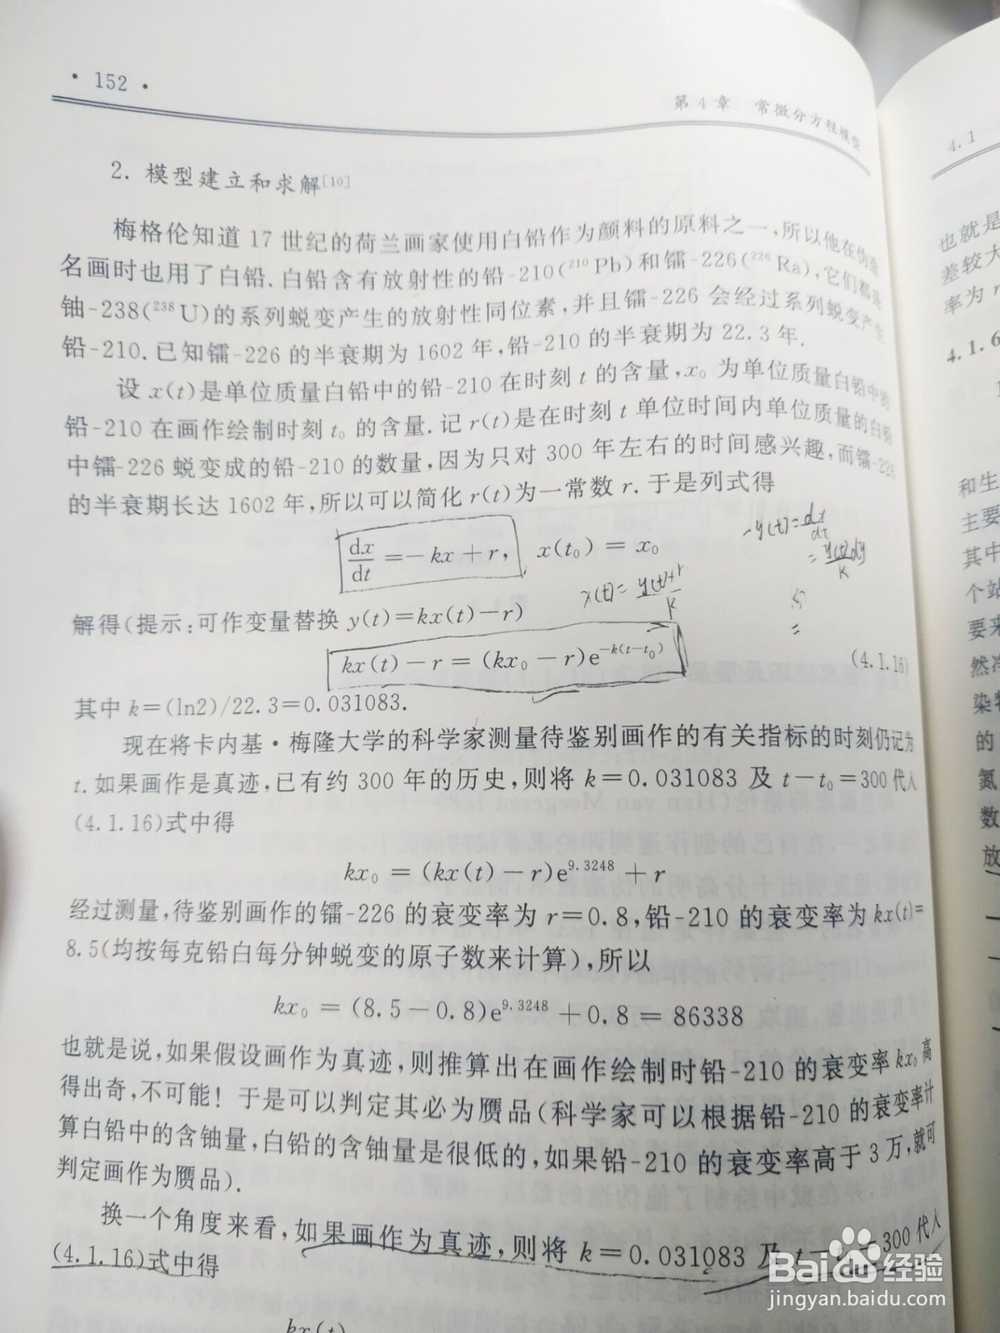 · 152 ·
第 4 章 常微分方程模型
2. 模型建立和求解[10]
梅格伦知道 17 世纪的荷兰画家使用白铅作为颜料的原料之一,所以他在伪造
名画时也用了白铅.白铅含有放射性的铅-210(²¹⁰Pb)和镭-226(²²⁶Ra),它们都是
铀-238(²³⁸U)的系列蜕变产生的放射性同位素,并且镭-226 会经过系列蜕变产生
铅-210.已知镭-226 的半衰期为 1602 年,铅-210 的半衰期为 22.3 年.
设 x(t)是单位质量白铅中的铅-210 在时刻 t 的含量,x₀ 为单位质量白铅中的
铅-210 在画作绘制时刻 t₀ 的含量.记 r(t)是在时刻 t 单位时间内单位质量的白铅
中镭-226 蜕变成的铅-210 的数量,因为只对 300 年左右的时间感兴趣,而镭-226
的半衰期长达 1602 年,所以可以简化 r(t)为一常数 r.于是列式得
dx/dt = -kx + r, x(t₀) = x₀
-y(t) = dx/dt
x(t) = y(t)+r/K
解得(提示:可作变量替换 y(t)=kx(t)-r)
kx(t) - r = (kx₀ - r)e^{-k(t-t₀)} (4.1.16)
其中 k=(ln2)/22.3=0.031083.
现在将卡内基·梅隆大学的科学家测量待鉴别画作的有关指标的时刻仍记为
t.如果画作是真迹,已有约 300 年的历史,则将 k=0.031083 及 t-t₀=300 代入
(4.1.16)式中得
kx₀ = (kx(t) - r)e^{9.3248} + r
经过测量,待鉴别画作的镭-226 的衰变率为 r=0.8,铅-210 的衰变率为 kx(t)=
8.5(均按每克铅白每分钟蜕变的原子数来计算),所以
kx₀ = (8.5 - 0.8)e^{9.3248} + 0.8 = 86338
也就是说,如果假设画作为真迹,则推算出在画作绘制时铅-210 的衰变率 kx₀ 高
得出奇,不可能! 于是可以判定其必为赝品(科学家可以根据铅-210 的衰变率计
算白铅中的含铀量,白铅的含铀量是很低的,如果铅-210 的衰变率高于 3 万,就可
判定画作为赝品).
换一个角度来看,如果画作为真迹,则将 k=0.031083 及 t-t₀=300 代入
(4.1.16)式中得
kx(t)
4.1
也就是
差较大
率为 r
4.1.6
和生
主要
其中
个站
要来
然冷
染物
的
氮
数
放
Baidu 经验
jingyan.baidu.com